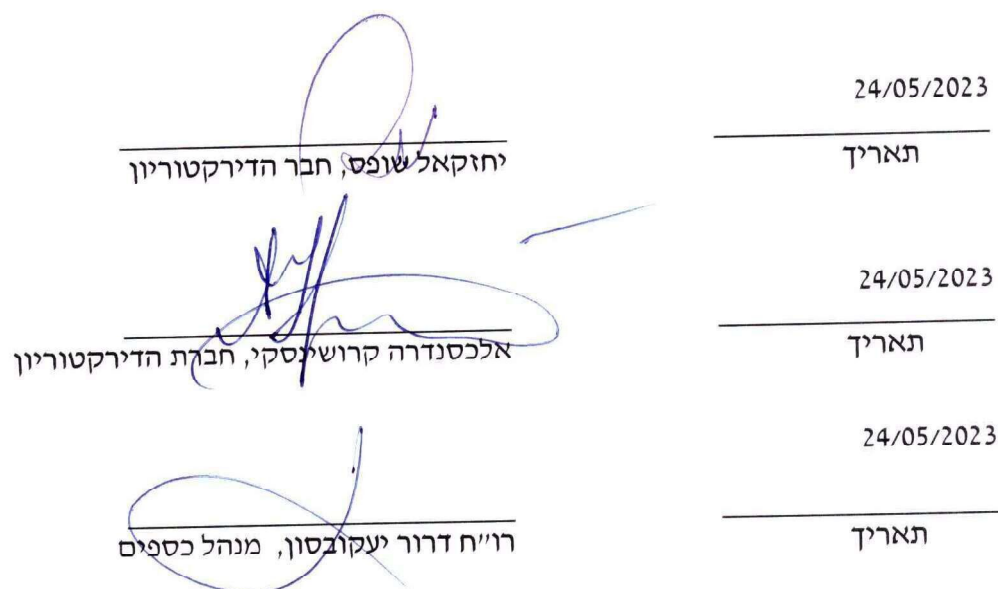 24/05/2023
תאריך
יחזקאל שופס, חבר הדירקטוריון
24/05/2023
תאריך
אלכסנדרה קרושינסקי, חברת הדירקטוריון
24/05/2023
תאריך
רו״ח דרור יעקובסון, מנהל כספים